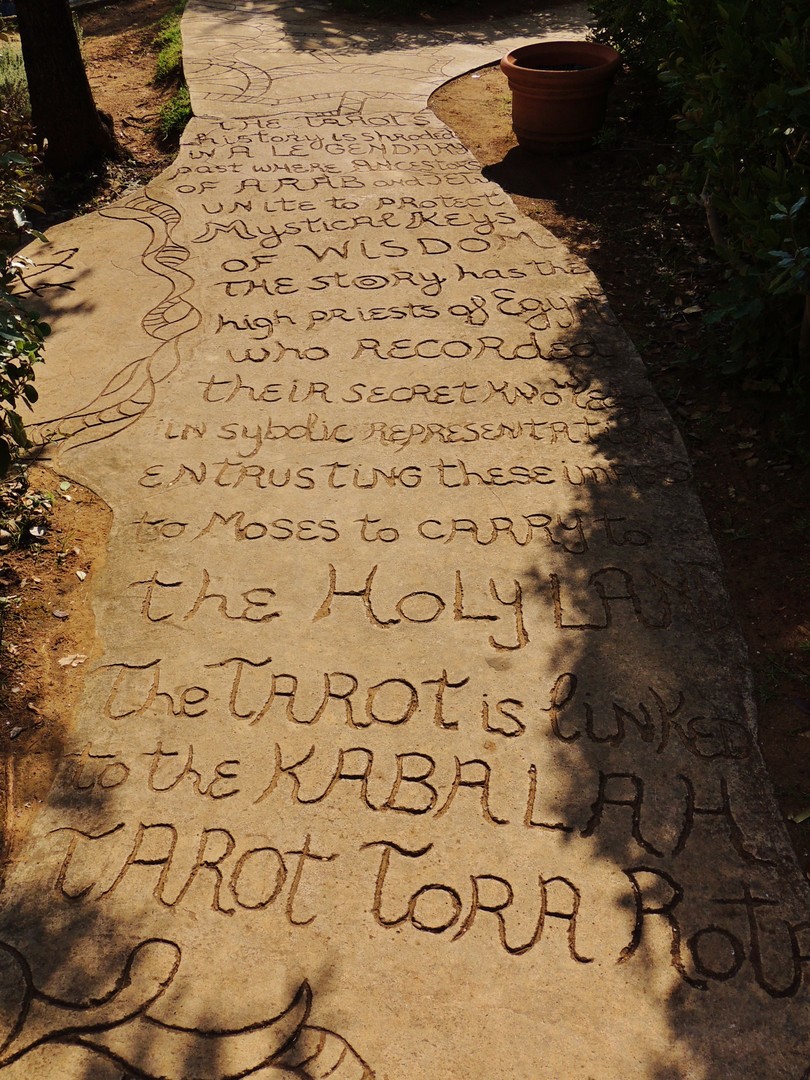 THE TAROT'S
history is shroded
in A LEGENDARY
past where ANCESTORS
OF ARAB and JEW
UNITE to PROTECT
Mystical KEYS
OF WISDOM
THE STORY has the
high priests of Egypt
who RECORded
their SECRET KNOWLE
IN sybolic REPRESENTAT
ENTRUSTING these im
to MOSES to CARRY to
the HOLY LAND
The TAROT is LINKED
to the KABALAH
TAROT TORA ROTA